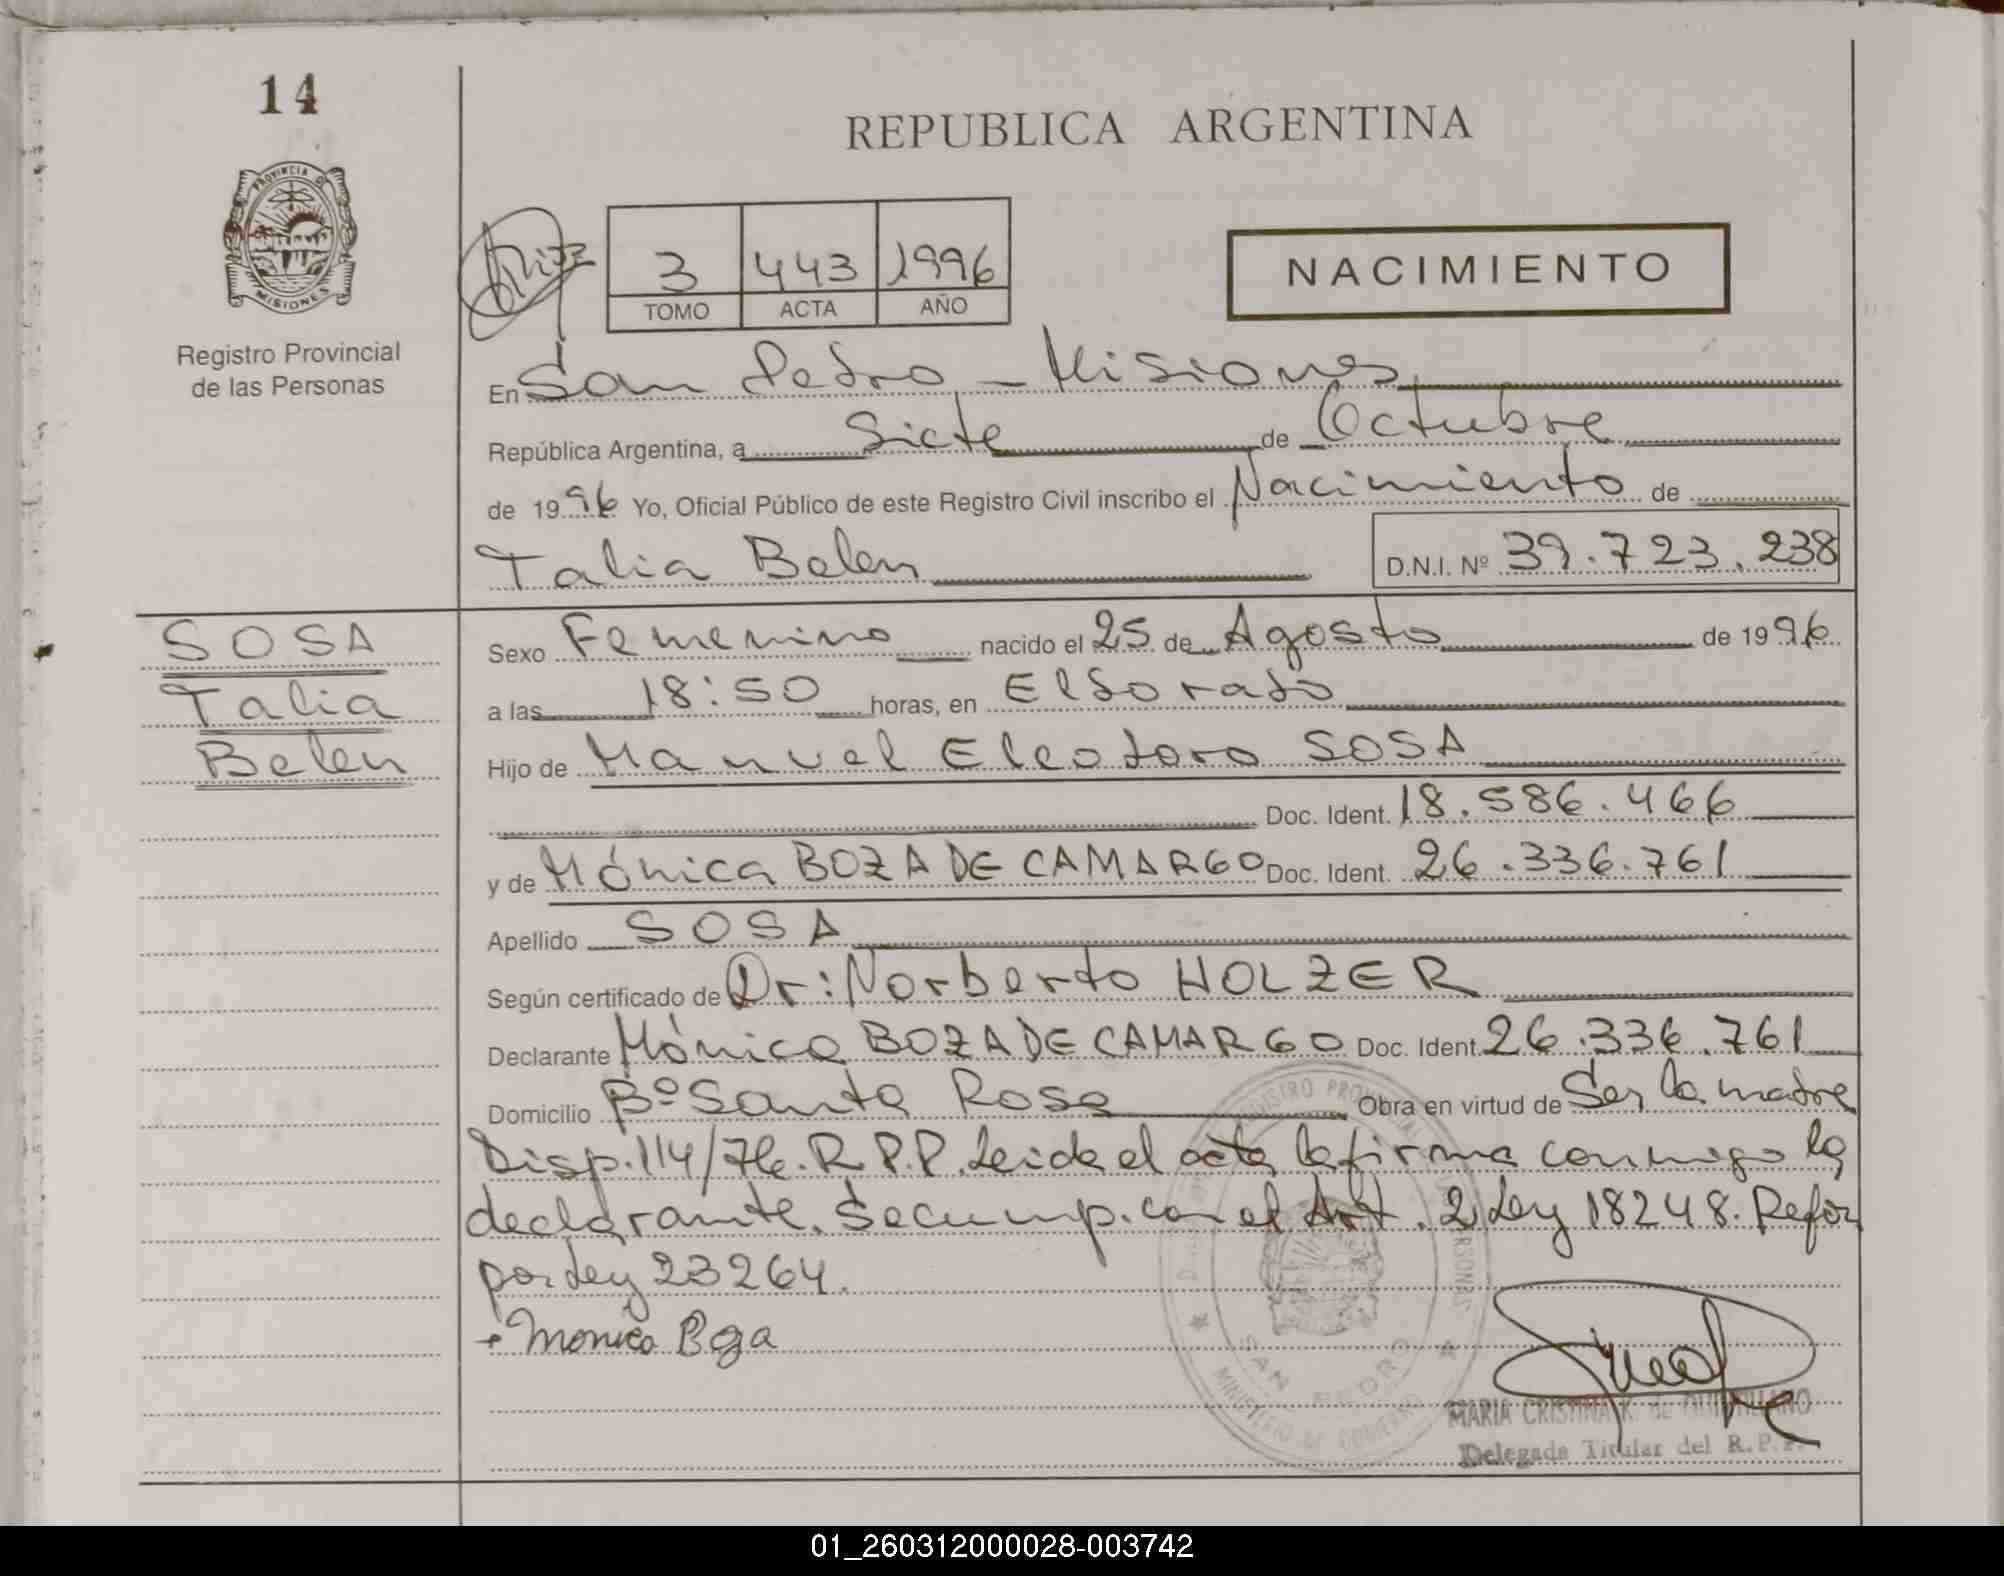 14
REPUBLICA ARGENTINA
PROVINCIA D
MISIONES
Registro Provincial
de las Personas
3 443 1996
TOMO ACTA AÑO
NACIMIENTO
En San Pedro - Misiones
República Argentina, a Siete de Octubre
de 1996 Yo, Oficial Público de este Registro Civil inscribo el Nacimiento de
Talia Belen D.N.I. Nº 39.723.238
SOSA
Talia
Belen
Sexo Femenino nacido el 25 de Agosto de 1996
a las 18:50 horas, en Eldorado
Hijo de Manuel Eleodoro SOSA
Doc. Ident. 18.586.466
y de Mónica BOZA DE CAMARGO Doc. Ident. 26.336.761
Apellido SOSA
Según certificado de Dr: Norberto HOLZER
Declarante Mónica BOZA DE CAMARGO Doc. Ident. 26.336.761
Domicilio Bº Santa Rosa Obra en virtud de Ser la madre
Disp. 114/76. R.P.P. Leida el acta la firma conmigo la
declarante. Se cump. con el Art. 2 Ley 18248. Refor
por Ley 23264.
Monica Boza
SAN PEDRO
MINISTERIO DE GOBIERNO
MARIA CRISTINA K. de
Delegada Titular del R.P.P.
01_260312000028-003742